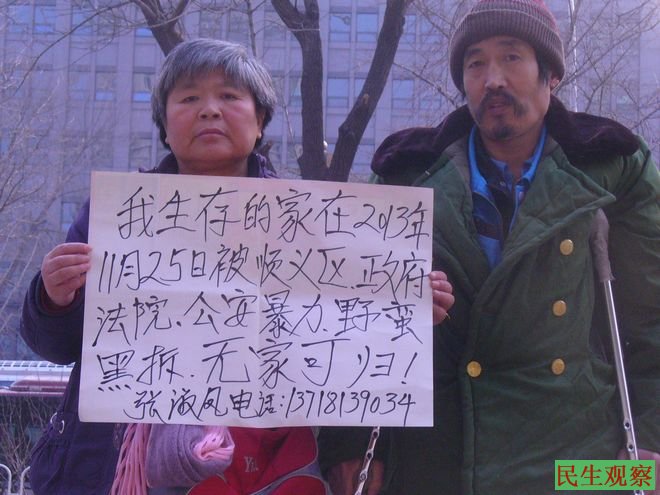 我生存的家在2013年
11月25日被顺义区.政府
法院.公安暴力.野蛮
黑拆.无家可归!
张淑凤电话:13718139034
民生观察